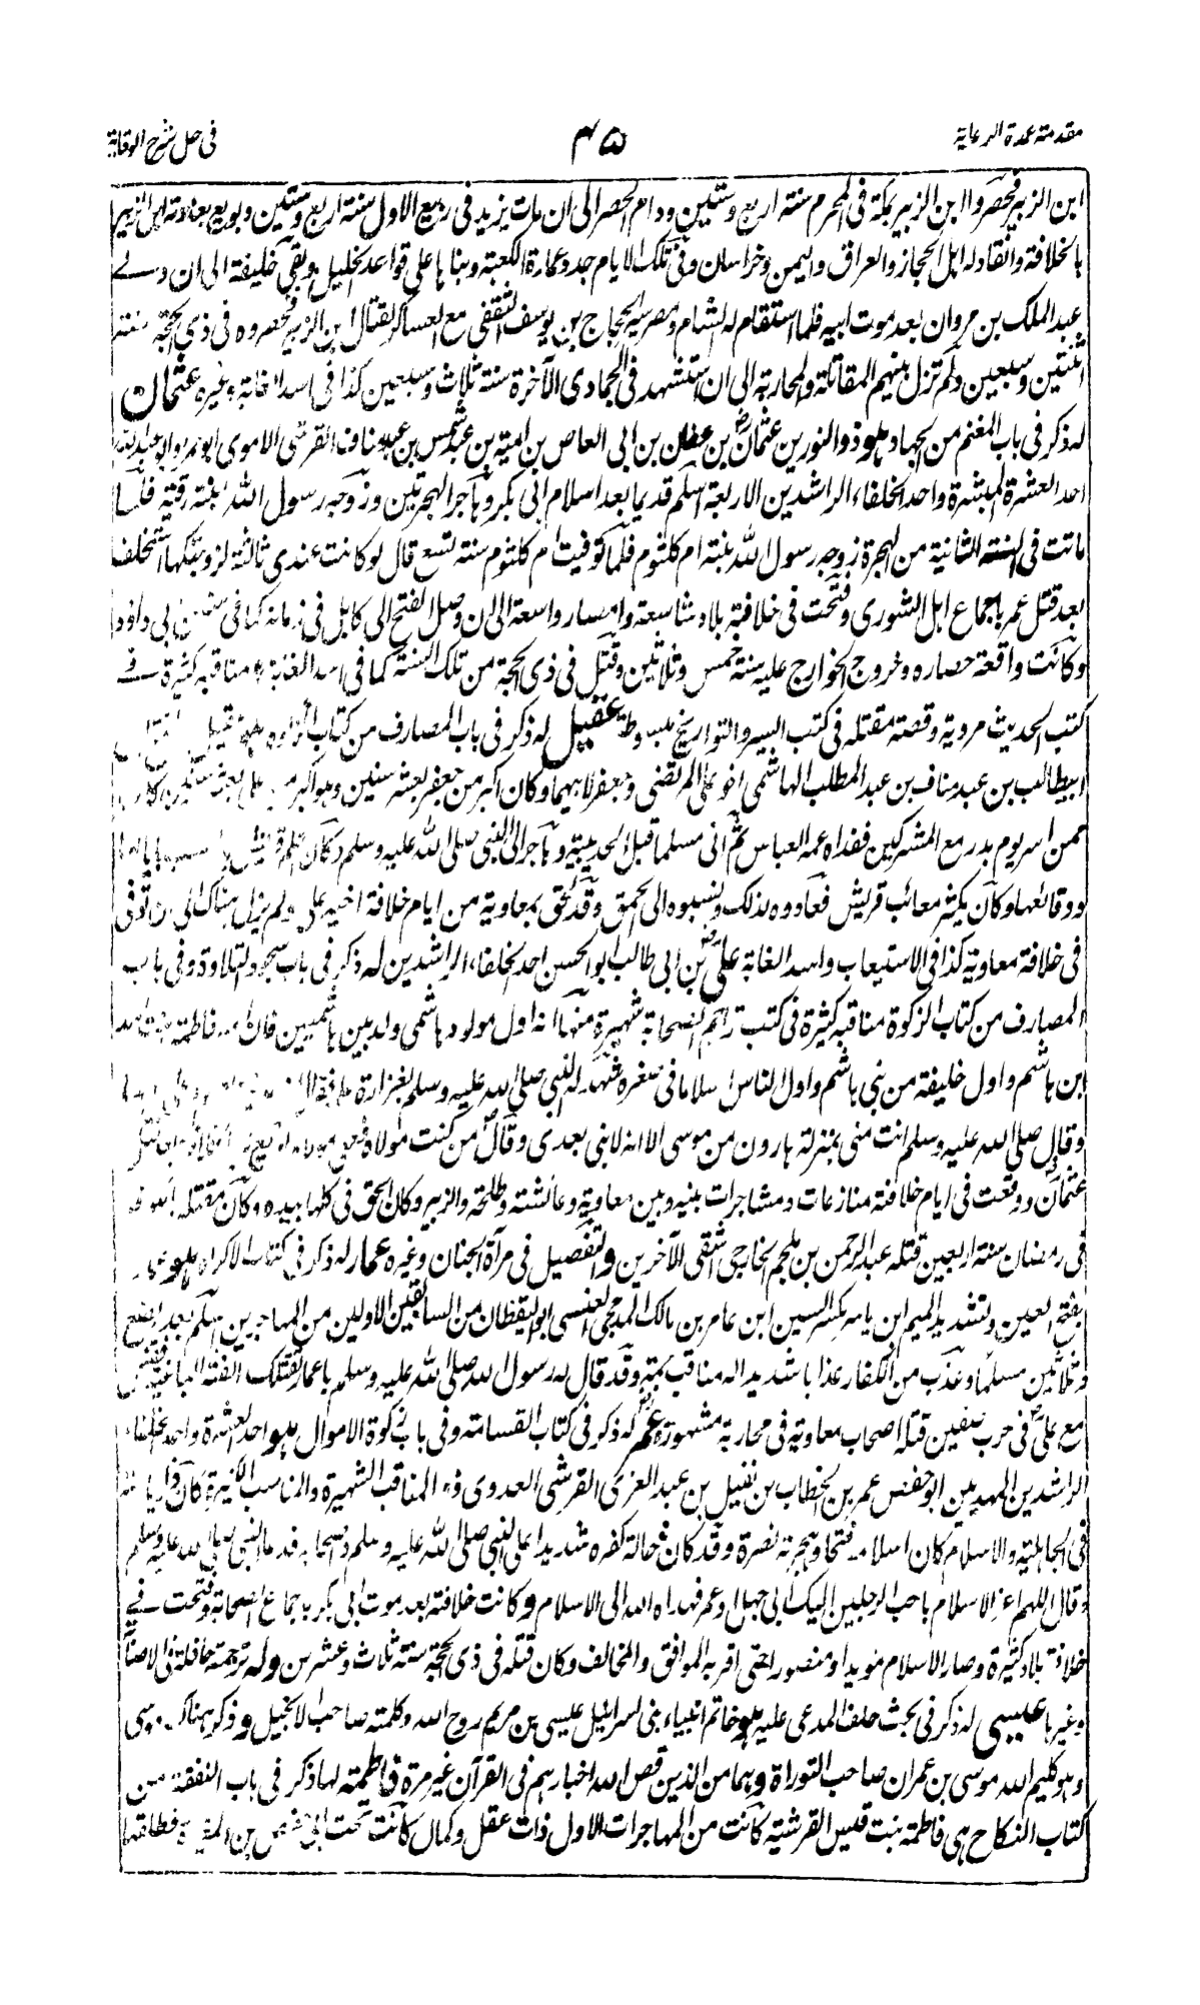 مقدمة عمدة الرعاية
٤٥
فی حل شرح الوقایة
ابن الزبیر فحصروا ابن الزبیر بمکة فی المحرم سنة اربع وستین ودام الحصر الی ان مات یزید فی ربیع الاول سنة اربع وستین وبویع بعد موته ابن الزبیر
بالخلافة وانقاد له اهل الحجاز والعراق والیمن وخراسان وفی تلک الایام جدد عمارة الکعبة وبناها علی قواعد الخلیل وبقی خلیفة الی ان ولے
عبد الملک بن مروان بعد موت ابیه فلما استقام له الشام ومصر سیر الحجاج بن یوسف الثقفی مع العساکر لقتال ابن الزبیر فحصروه فی ذی الحجة سنة
اثنتین وسبعین ولم تزل بینهم المقاتلة والمحاربة الی ان استشهد فی الجمادی الآخرة سنة ثلاث وسبعین کذا فی اسد الغابة وغیره عثمان
له ذکر فی باب المغنم من الجهاد هو ذو النورین عثمان بن عفان بن ابی العاص بن امیة بن عبد شمس بن عبد مناف القرشی الاموی ابو عمرو ابو عبد الله
احد العشرة المبشرة واحد الخلفاء الراشدین الاربعة اسلم قدیما بعد اسلام ابی بکر وهاجر الهجرتین وزوجه رسول الله بنته رقیة فلما
ماتت فی السنة الثانیة من الهجرة زوجه رسول الله بنته ام کلثوم فلما توفیت ام کلثوم سنة تسع قال لو کانت عندی ثالثة لزوجتکها استخلف
بعد قتل عمر باجماع اهل الشوری وفتحت فی خلافته بلاد شاسعة وامصار واسعة الی ان وصل الفتح الی کابل فی زمانه کما فی سنن ابی داود
وکانت واقعة حصاره وخروج الخوارج علیه سنة خمس وثلاثین وقتل فی ذی الحجة من تلک السنة کما فی اسد الغابة مناقبه کثیرة فے
کتب الحدیث مرویة وقصة مقتله فی کتب السیر والتواریخ مبسوطة عقیل له ذکر فی باب المصارف من کتاب الزکوة هو عقیل
ابیطالب بن عبد مناف بن عبد المطلب الهاشمی اخو علی المرتضی وجعفر لابیهما وکان اکبر من جعفر بعشر سنین وهو اکبر من علی بعشر سنین وکان
ممن اسر یوم بدر مع المشرکین ففداه عمه العباس ثم اتی مسلما قبل الحدیبیة وهاجر الی النبی صلی الله علیه وسلم وکان اعلم قریش
ووقائعها وکان یکثر معائب قریش فعادوه لذلک ونسبوه الی الحمق وقد لحق بمعاویة من ایام خلافة اخیه علی ولم یزل هناک الی ان توفی
فی خلافة معاویة کذا فی الاستیعاب واسد الغابة علی بن ابی طالب ابو الحسن احد الخلفاء الراشدین له ذکر فی باب سجود التلاوة وفی باب
المصارف من کتاب الزکوة مناقبه کثیرة فی کتب تراجم الصحابة شهیرة منها انه اول مولود هاشمی ولد بین هاشمیین فان امه فاطمة بنت اسد
ابن هاشم واول خلیفة من بنی هاشم واول الناس اسلاما فی صغره شهد له النبی صلی الله علیه وسلم بغزارة علمه
وقال صلی الله علیه وسلم انت منی بمنزلة هارون من موسی الا انه لا نبی بعدی وقال من کنت مولاه فعلی مولاه بویع
عثمان ووقعت فی ایام خلافته منازعات ومشاجرات بینه وبین معاویة وعائشة وطلحة والزبیر وکان الحق فی کلها بیده وکان مقتله
فی رمضان سنة اربعین قتله عبد الرحمن بن ملجم الخارجی اشقی الآخرین والتفصیل فی مرآة الجنان وغیره عمار له ذکر فی کتاب الاکراه هو عمار
بفتح العین وتشدید المیم ابن یاسر بکسر السین ابن عامر بن مالک المذحجی العنسی ابو الیقظان من السابقین الاولین من المهاجرین اسلم بعد بضع
وثلاثین مسلما وعذب من الکفار عذابا شدیدا له مناقب جمة وقد قال له رسول الله صلی الله علیه وسلم یا عمار تقتلک الفئة الباغیة فقتل
مع علی فی حرب صفین قتله اصحاب معاویة فی محاربة مشهورة عمر له ذکر فی کتاب القسامة وفی باب زکوة الاموال هو احد العشرة واحد الخلفاء
الراشدین المهدیین ابو حفص عمر بن الخطاب بن نفیل بن عبد العزی القرشی العدوی ذو المناقب الشهیرة والمناسب الکثیرة کان
فی الجاهلیة والاسلام کان اسلامه فتحا وهجرته نصرة وقد کان فی حالة کفره شدیدا علی النبی صلی الله علیه وسلم واصحابه فدعا النبی صلی الله علیه وسلم
وقال اللهم اعز الاسلام باحب الرجلین الیک ابی جهل وعمر فهداه الله الی الاسلام وکانت خلافته بعد موت ابی بکر باجماع الصحابة وفتحت فے
خلافته بلاد کثیرة وصار الاسلام مویدا ومنصورا حتی اقر به الموافق والمخالف وکان قتله فی ذی الحجة سنة ثلاث وعشرین وله ترجمة حافلة فی الاصابة
وغیرها عیسی له ذکر فی بحث حلف المدعی علیه هو خاتم انبیاء بنی اسرائیل عیسی بن مریم روح الله وکلمته صاحب الانجیل وذکر هناک موسی
وهو کلیم الله موسی بن عمران صاحب التوراة وهما من الذین قص الله اخبارهم فی القرآن غیر مرة فاطمة لها ذکر فی باب النفقة من
کتاب النکاح هی فاطمة بنت قیس القرشیة کانت من المهاجرات الاول ذات عقل وکمال کانت تحت ابی حفص بن المغیرة فطلقها